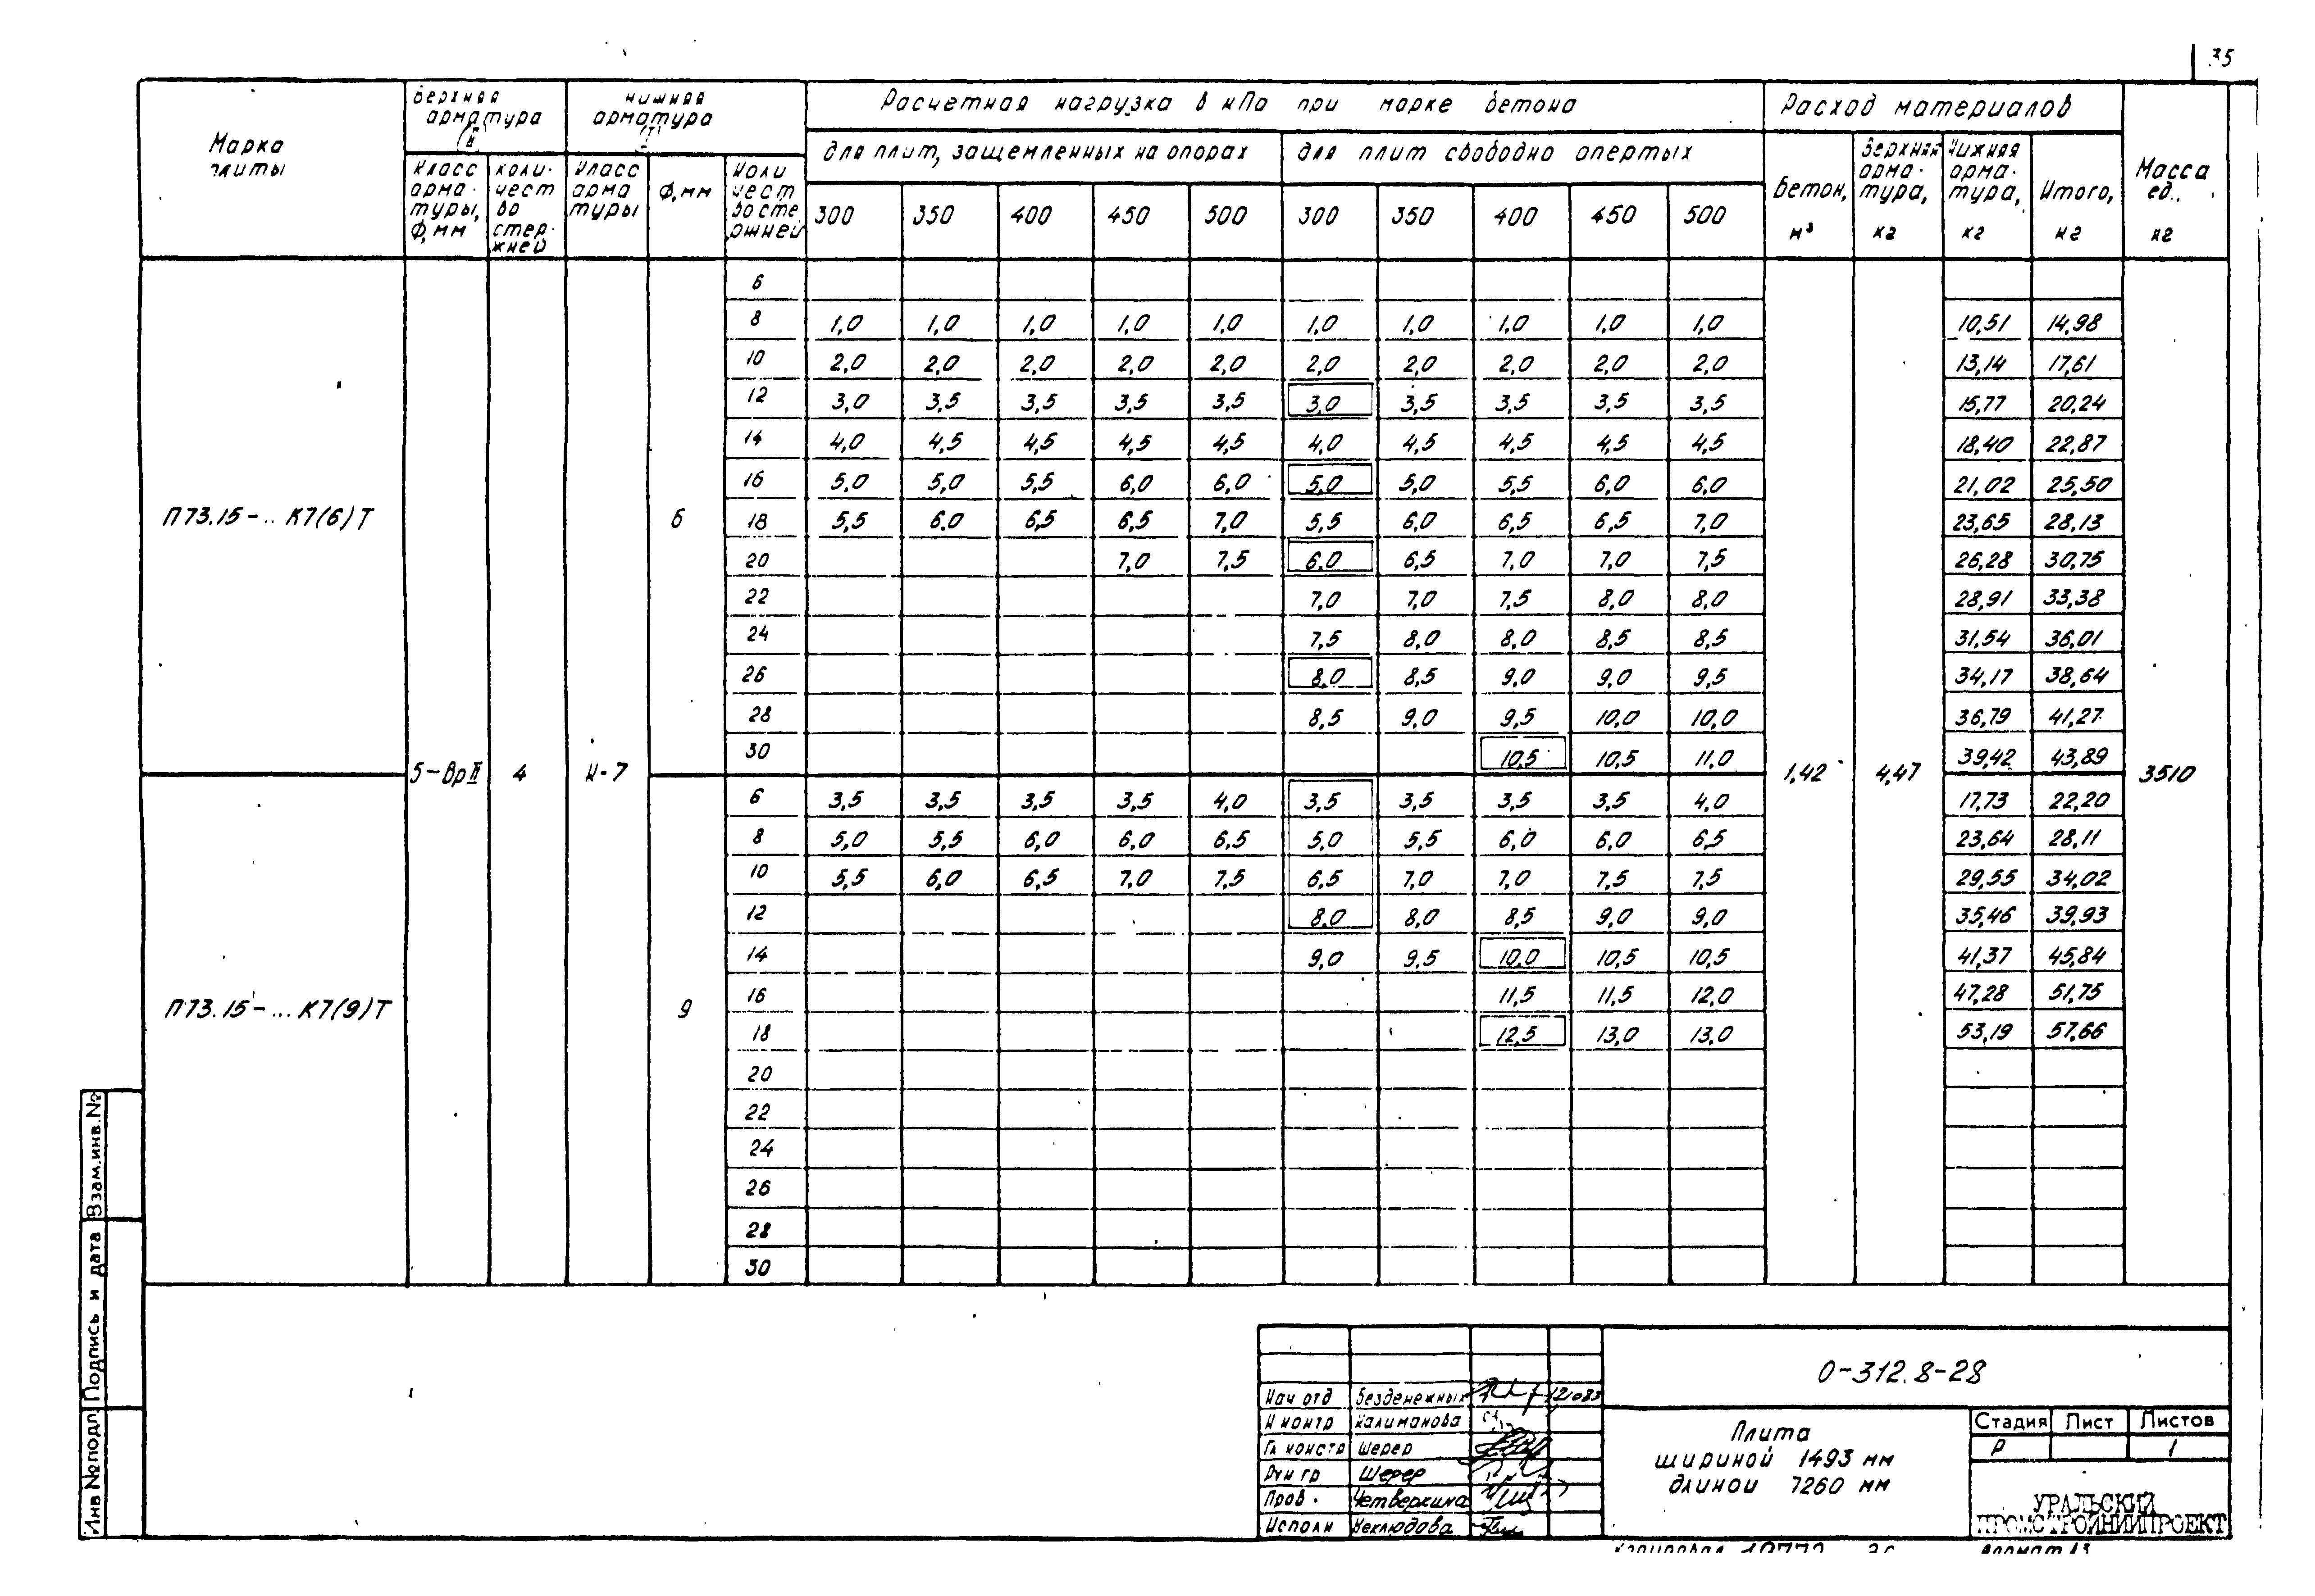 35
Марка плиты
Верхняя арматура (II)
нижняя арматура (I)
Расчетная нагрузка в кПа при марке бетона
Расход материалов
Масса ед., кг
Класс арматуры, Ф, мм
количество стержней
Класс арматуры
Ф, мм
Количество стержней
для плит, защемленных на опорах
для плит свободно опертых
300 350 400 450 500 300 350 400 450 500
Бетон, м³
Верхняя арматура, кг
Нижняя арматура, кг
Итого, кг
П73.15-.. К7(6)Т
5-ВрII 4 К-7
6
1,42 4,47 3510
6
8 1,0 1,0 1,0 1,0 1,0 1,0 1,0 1,0 1,0 1,0 10,51 14,98
10 2,0 2,0 2,0 2,0 2,0 2,0 2,0 2,0 2,0 2,0 13,14 17,61
12 3,0 3,5 3,5 3,5 3,5 3,0 3,5 3,5 3,5 3,5 15,77 20,24
14 4,0 4,5 4,5 4,5 4,5 4,0 4,5 4,5 4,5 4,5 18,40 22,87
16 5,0 5,0 5,5 6,0 6,0 5,0 5,0 5,5 6,0 6,0 21,02 25,50
18 5,5 6,0 6,5 6,5 7,0 5,5 6,0 6,5 6,5 7,0 23,65 28,13
20 7,0 7,5 6,0 6,5 7,0 7,0 7,5 26,28 30,75
22 7,0 7,0 7,5 8,0 8,0 28,91 33,38
24 7,5 8,0 8,0 8,5 8,5 31,54 36,01
26 8,0 8,5 9,0 9,0 9,5 34,17 38,64
28 8,5 9,0 9,5 10,0 10,0 36,79 41,27
30 10,5 10,5 11,0 39,42 43,89
П73.15-... К7(9)Т
9
6 3,5 3,5 3,5 3,5 4,0 3,5 3,5 3,5 3,5 4,0 17,73 22,20
8 5,0 5,5 6,0 6,0 6,5 5,0 5,5 6,0 6,0 6,5 23,64 28,11
10 5,5 6,0 6,5 7,0 7,5 6,5 7,0 7,0 7,5 7,5 29,55 34,02
12 8,0 8,0 8,5 9,0 9,0 35,46 39,93
14 9,0 9,5 10,0 10,5 10,5 41,37 45,84
16 11,5 11,5 12,0 47,28 51,75
18 12,5 13,0 13,0 53,19 57,66
20
22
24
26
28
30
Инв №подл. Подпись и дата Взам.инв.№
0-312.8-28
Нач отд Безденежных 121083
Н контр Калиманова
Гл констр Шерер
Рук гр Шерер
Пров. Четверкина
Исполн Неклюдова
Плита
шириной 1493 мм
длиной 7260 мм
Стадия Лист Листов
Р 1
УРАЛЬСКИЙ
ПРОМСТРОЙНИИПРОЕКТ